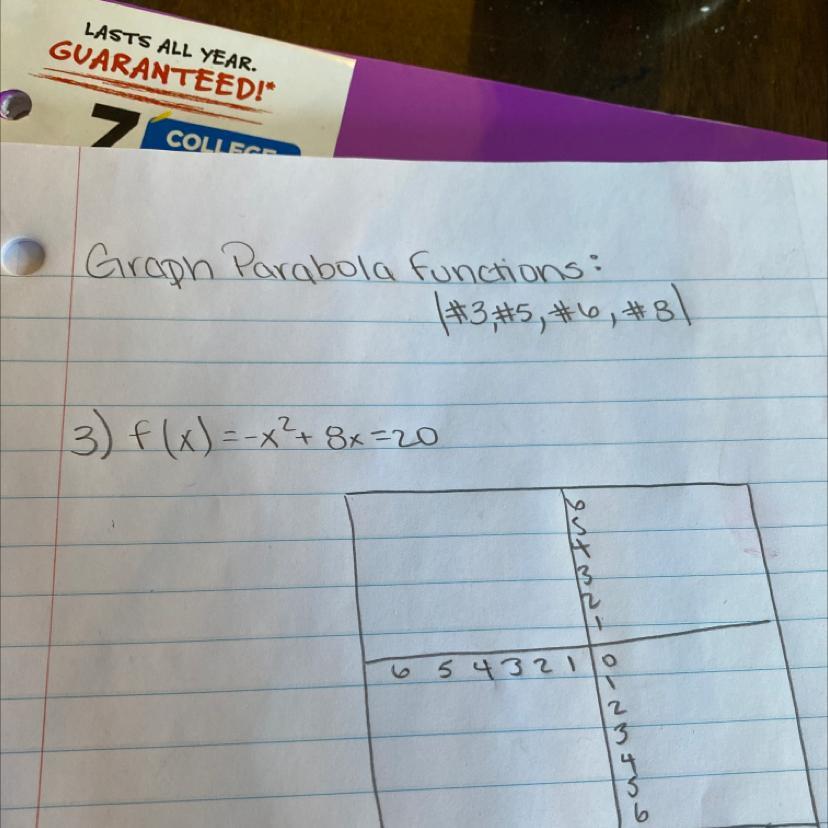 LASTS ALL YEAR.
GUARANTEED!*
7
COLLEGE
Graph Parabola functions:
|#3,#5, #6, #8|
3) f(x)=-x²+ 8x=20
6
5
4
3
2
1
6 5 4 3 2 1 0
1
2
3
4
5
6